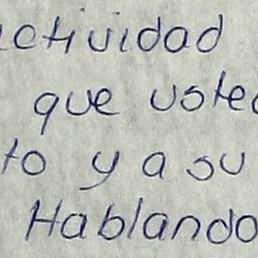 ctividad
que uste
to y a su
Hablando